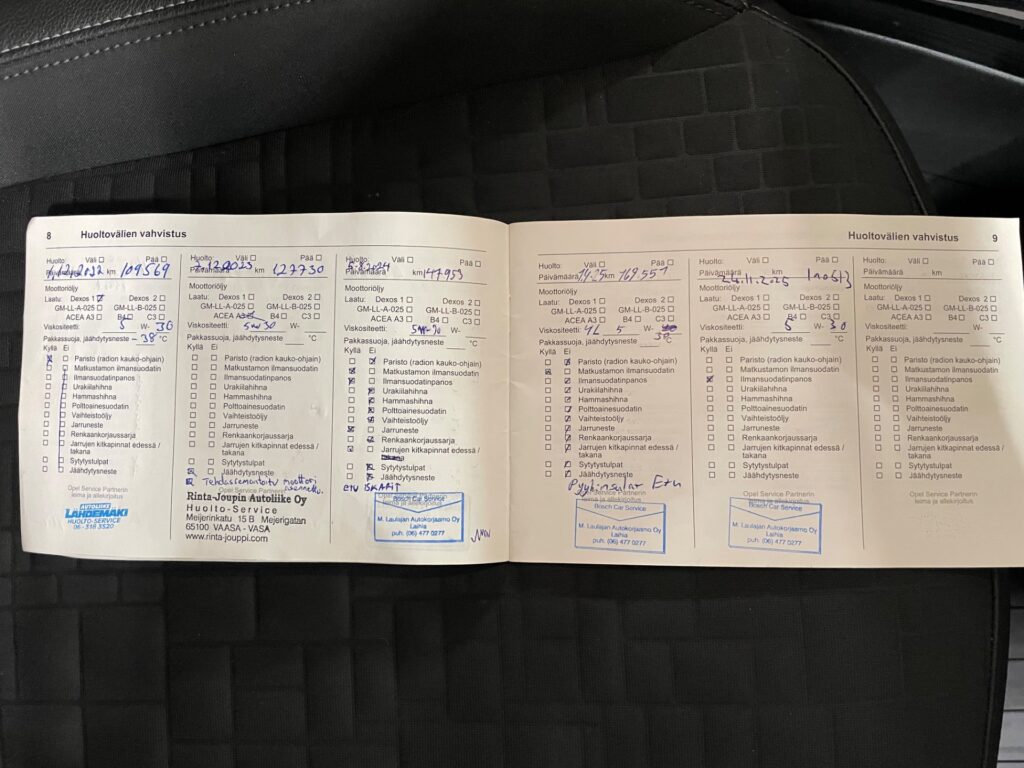 8 Huoltovälien vahvistus
Huolto: Väli Pää
Päivämäärä km 109569
Moottoriöljy
Laatu: Dexos 1 Dexos 2
GM-LL-A-025 GM-LL-B-025
ACEA A3 B4 C3
Viskositeetti: 5 W- 30
Pakkassuoja, jäähdytysneste -38 °C
Kyllä Ei
Paristo (radion kauko-ohjain)
Matkustamon ilmansuodatin
Ilmansuodatinpanos
Urakiilahihna
Hammashihna
Polttoainesuodatin
Vaihteistoöljy
Jarruneste
Renkaankorjaussarja
Jarrujen kitkapinnat edessä /
takana
Sytytystulpat
Jäähdytysneste
Opel Service Partnerin
leima ja allekirjoitus
AUTOLIIKE
LÄHDEMÄKI
HUOLTO-SERVICE
06-318 3520
Huolto: Väli Pää
7.12.2023
Päivämäärä km 127730
Moottoriöljy
Laatu: Dexos 1 Dexos 2
GM-LL-A-025 GM-LL-B-025
ACEA B4 C3
Viskositeetti: 5w30 W-
Pakkassuoja, jäähdytysneste °C
Kyllä Ei
Paristo (radion kauko-ohjain)
Matkustamon ilmansuodatin
Ilmansuodatinpanos
Urakiilahihna
Hammashihna
Polttoainesuodatin
Vaihteistoöljy
Jarruneste
Renkaankorjaussarja
Jarrujen kitkapinnat edessä /
takana
Sytytystulpat
Jäähdytysneste
Opel Service Partnerin
Rinta-Joupin Autoliike Oy
Huolto-Service
Meijerinkatu 15 B Mejerigatan
65100 VAASA - VASA
www.rinta-jouppi.com
Huolto: Väli Pää
5.8.2024
Päivämäärä km 147953
Moottoriöljy
Laatu: Dexos 1 Dexos 2
GM-LL-A-025 GM-LL-B-025
ACEA A3 B4 C3
Viskositeetti: W-
Pakkassuoja, jäähdytysneste °C
Kyllä Ei
Paristo (radion kauko-ohjain)
Matkustamon ilmansuodatin
Ilmansuodatinpanos
Urakiilahihna
Hammashihna
Polttoainesuodatin
Vaihteistoöljy
Jarruneste
Renkaankorjaussarja
Jarrujen kitkapinnat edessä /
Sytytystulpat
Jäähdytysneste
etu ISKARIT
Bosch Car Service
M. Laulajan Autokorjaamo Oy
Laihia
puh. (06) 477 0277
Huoltovälien vahvistus 9
Huolto: Väli Pää
Päivämäärä km 169551
Moottoriöljy
Laatu: Dexos 1 Dexos 2
GM-LL-A-025 GM-LL-B-025
ACEA A3 B4 C3
Viskositeetti: 4L 5 W-
Pakkassuoja, jäähdytysneste °C
Kyllä Ei
Paristo (radion kauko-ohjain)
Matkustamon ilmansuodatin
Ilmansuodatinpanos
Urakiilahihna
Hammashihna
Polttoainesuodatin
Vaihteistoöljy
Jarruneste
Renkaankorjaussarja
Jarrujen kitkapinnat edessä /
takana
Sytytystulpat
Jäähdytysneste
Opel Service Partnerin
leima ja allekirjoitus
Bosch Car Service
M. Laulajan Autokorjaamo Oy
Laihia
puh. (06) 477 0277
Huolto: Väli Pää
Päivämäärä 24.11.2025 km
Moottoriöljy
Laatu: Dexos 1 Dexos 2
GM-LL-A-025 GM-LL-B-025
ACEA A3 B4 C3
Viskositeetti: 5 W- 30
Pakkassuoja, jäähdytysneste °C
Kyllä Ei
Paristo (radion kauko-ohjain)
Matkustamon ilmansuodatin
Ilmansuodatinpanos
Urakiilahihna
Hammashihna
Polttoainesuodatin
Vaihteistoöljy
Jarruneste
Renkaankorjaussarja
Jarrujen kitkapinnat edessä /
takana
Sytytystulpat
Jäähdytysneste
Opel Service Partnerin
leima ja allekirjoitus
Bosch Car Service
M. Laulajan Autokorjaamo Oy
Laihia
puh. (06) 477 0277
Huolto: Väli Pää
Päivämäärä km
Moottoriöljy
Laatu: Dexos 1 Dexos 2
GM-LL-A-025 GM-LL-B-025
ACEA A3 B4 C3
Viskositeetti: W-
Pakkassuoja, jäähdytysneste °C
Kyllä Ei
Paristo (radion kauko-ohjain)
Matkustamon ilmansuodatin
Ilmansuodatinpanos
Urakiilahihna
Hammashihna
Polttoainesuodatin
Vaihteistoöljy
Jarruneste
Renkaankorjaussarja
Jarrujen kitkapinnat edessä /
takana
Sytytystulpat
Jäähdytysneste
Opel Service Partnerin
leima ja allekirjoitus